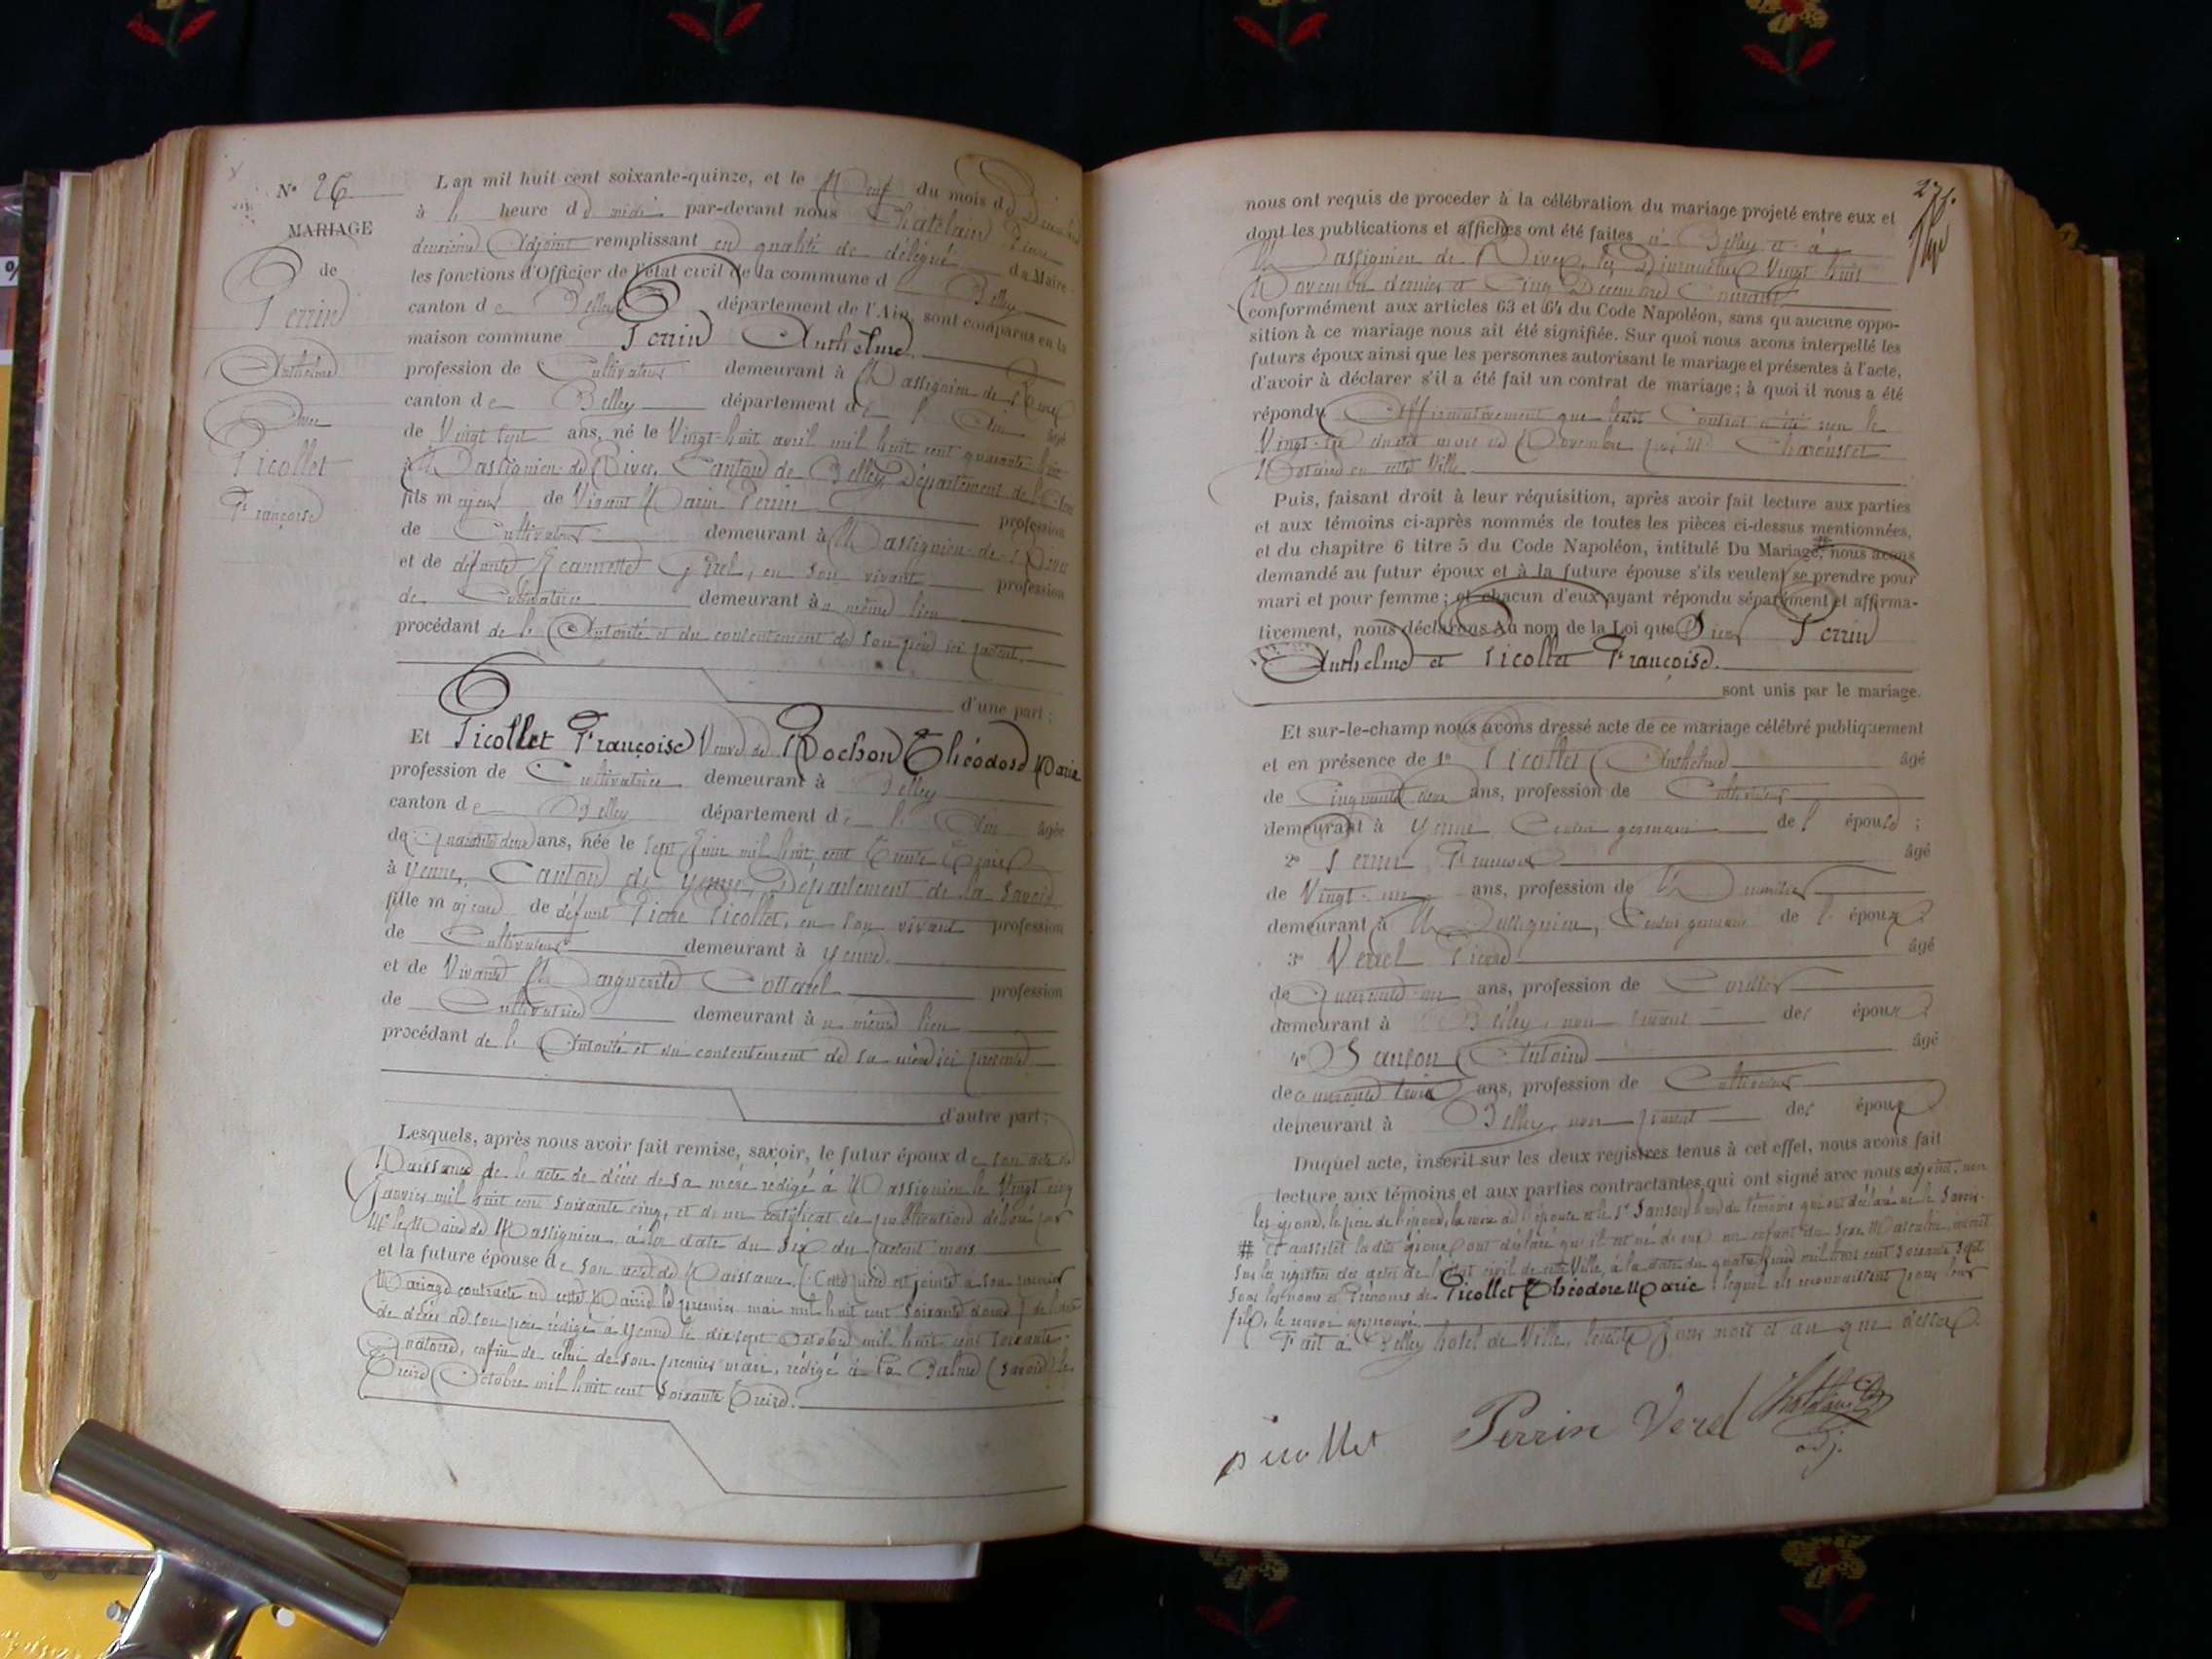 N° 26
MARIAGE
de
Perrin
Anthelme
Avec
Picollet
Françoise
L'an mil huit cent soixante-quinze, et le Neuf du mois de Décembre
à l' heure de midi par-devant nous Chatelain Pierre
deuxième Adjoint remplissant en qualité de délégué du Maire
les fonctions d'Officier de l'état civil de la commune d Belley
canton de Belley département de l'Ain, sont comparus en la
maison commune Perrin Anthelme
profession de Cultivateur demeurant à Massignieu de Rives
canton de Belley département de l'Ain âgé
de Vingt sept ans, né le Vingt-huit avril mil huit cent quarante-huit
à Massignieu-de-Rives, Canton de Belley, Département de l'Ain
fils majeur de Vivant Marin Perrin profession
de Cultivateur demeurant à Massignieu-de-Rives
et de défunte Jeannette Girel, en son vivant profession
de Cultivatrice demeurant au même lieu
procédant de l'Autorité et du consentement de son père ici présent.
d'une part ;
Et Picollet Françoise Veuve de Rochon Théodore Marie
profession de Cultivatrice demeurant à Belley
canton de Belley département de l'Ain âgée
de Quarante deux ans, née le sept Juin mil huit cent Trente Trois
à Yenne, Canton de Yenne, Département de la Savoie
fille majeure de défunt Pierre Picollet, en son vivant profession
de Cultivateur demeurant à Yenne
et de Vivante Marguerite Cotterel profession
de Cultivatrice demeurant au même lieu
procédant de l'Autorité et du consentement de sa mère ici présente
d'autre part ;
Lesquels, après nous avoir fait remise, savoir, le futur époux de son acte de
Naissance de l'acte de décès de sa mère rédigé à Massignieu le Vingt cinq
Janvier mil huit cent soixante cinq, et d'un certificat de publication délivré par
Mr le Maire de Massignieu, à la date du Six du présent mois
et la future épouse de son acte de Naissance, (Cette pièce est jointe à son premier
Mariage contracté en cette Mairie le premier mai mil huit cent soixante douze) de l'acte
de décès de son père rédigé à Yenne le dix sept Octobre mil huit cent soixante-
Quatorze, enfin de celui de son premier mari, rédigé à La Balme (Savoie) le
Treize Octobre mil huit cent soixante Treize.
27.
nous ont requis de procéder à la célébration du mariage projeté entre eux et
dont les publications et affiches ont été faites à Belley et à
Massignieu de Rives, les Dimanches Vingt huit
Novembre dernier et Cinq Décembre Courant
conformément aux articles 63 et 64 du Code Napoléon, sans qu'aucune oppo-
sition à ce mariage nous ait été signifiée. Sur quoi nous avons interpellé les
futurs époux ainsi que les personnes autorisant le mariage et présentes à l'acte,
d'avoir à déclarer s'il a été fait un contrat de mariage ; à quoi il nous a été
répondu Affirmativement que ledit Contrat a été reçu le
Vingt-six dudit mois de Novembre par Me Charcusset
Notaire en cette Ville
Puis, faisant droit à leur réquisition, après avoir fait lecture aux parties
et aux témoins ci-après nommés de toutes les pièces ci-dessus mentionnées,
et du chapitre 6 titre 5 du Code Napoléon, intitulé Du Mariage, # nous avons
demandé au futur époux et à la future épouse s'ils veulent se prendre pour
mari et pour femme ; et chacun d'eux ayant répondu séparément et affirma-
tivement, nous déclarons Au nom de la Loi que Sieur Perrin
Anthelme et Picollet Françoise.
sont unis par le mariage.
Et sur-le-champ nous avons dressé acte de ce mariage célébré publiquement
et en présence de 1° Picollet Anthelme âgé
de Cinquante deux ans, profession de Cultivateur
demeurant à Yenne Cousin germain de l'épouse ;
2° Perrin François âgé
de Vingt-un ans, profession de
demeurant à Massignieu, Cousin germain de l'époux ;
3° Verel Pierre âgé
de Quarante-un ans, profession de Cordier
demeurant à Belley, non parent des époux ;
4° Sanson Antoine âgé
de quarante trois ans, profession de Cultivateur
demeurant à Belley, non parent des époux
Duquel acte, inscrit sur les deux registres tenus à cet effet, nous avons fait
lecture aux témoins et aux parties contractantes, qui ont signé avec nous adjoint, non
les époux, le père de l'époux, la mère de l'épouse et le Sr Sanson l'un des témoins qui ont déclaré ne le savoir.
# Et aussitôt lesdits époux ont déclaré qu'il est né d'eux un enfant du sexe Masculin inscrit
sur les registres des actes de l'état civil de cette Ville, à la date du quatre mil huit cent soixante sept
sous les noms et Prénoms de Picollet Théodore Marie, lequel ils reconnaissent pour leur
fils, le renvoi approuvé.
Fait à Belley hôtel de Ville, lesdits jour mois et an que dessus.
picollet Perrin Verel Chatelain
adj.